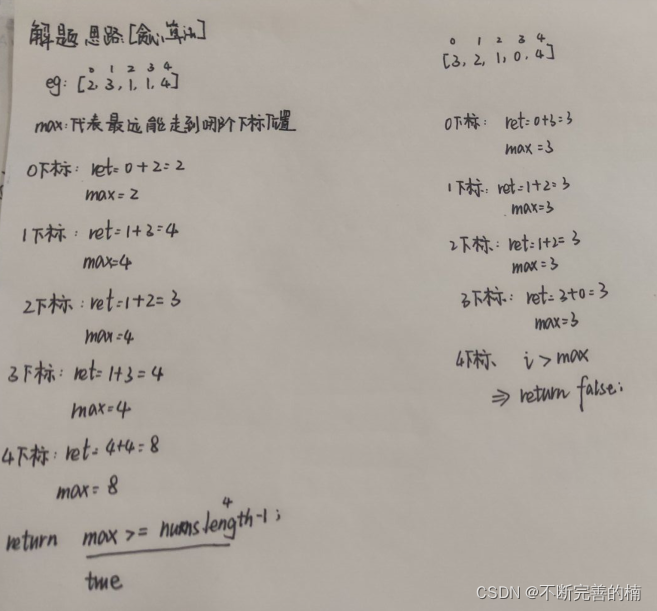 解题思路[贪心算法]
0 1 2 3 4
eg: [2, 3, 1, 1, 4]
max: 代表最远能走到哪个下标位置
0下标: ret=0+2=2
max=2
1下标: ret=1+3=4
max=4
2下标: ret=1+2=3
max=4
3下标: ret=1+3=4
max=4
4下标: ret=4+4=8
max=8
4
return max >= nums.length-1;
true
0 1 2 3 4
[3, 2, 1, 0, 4]
0下标: ret=0+3=3
max=3
1下标: ret=1+2=3
max=3
2下标: ret=1+2=3
max=3
3下标: ret=3+0=3
max=3
4下标、 i>max
⇒ return false;
CSDN @不断完善的楠